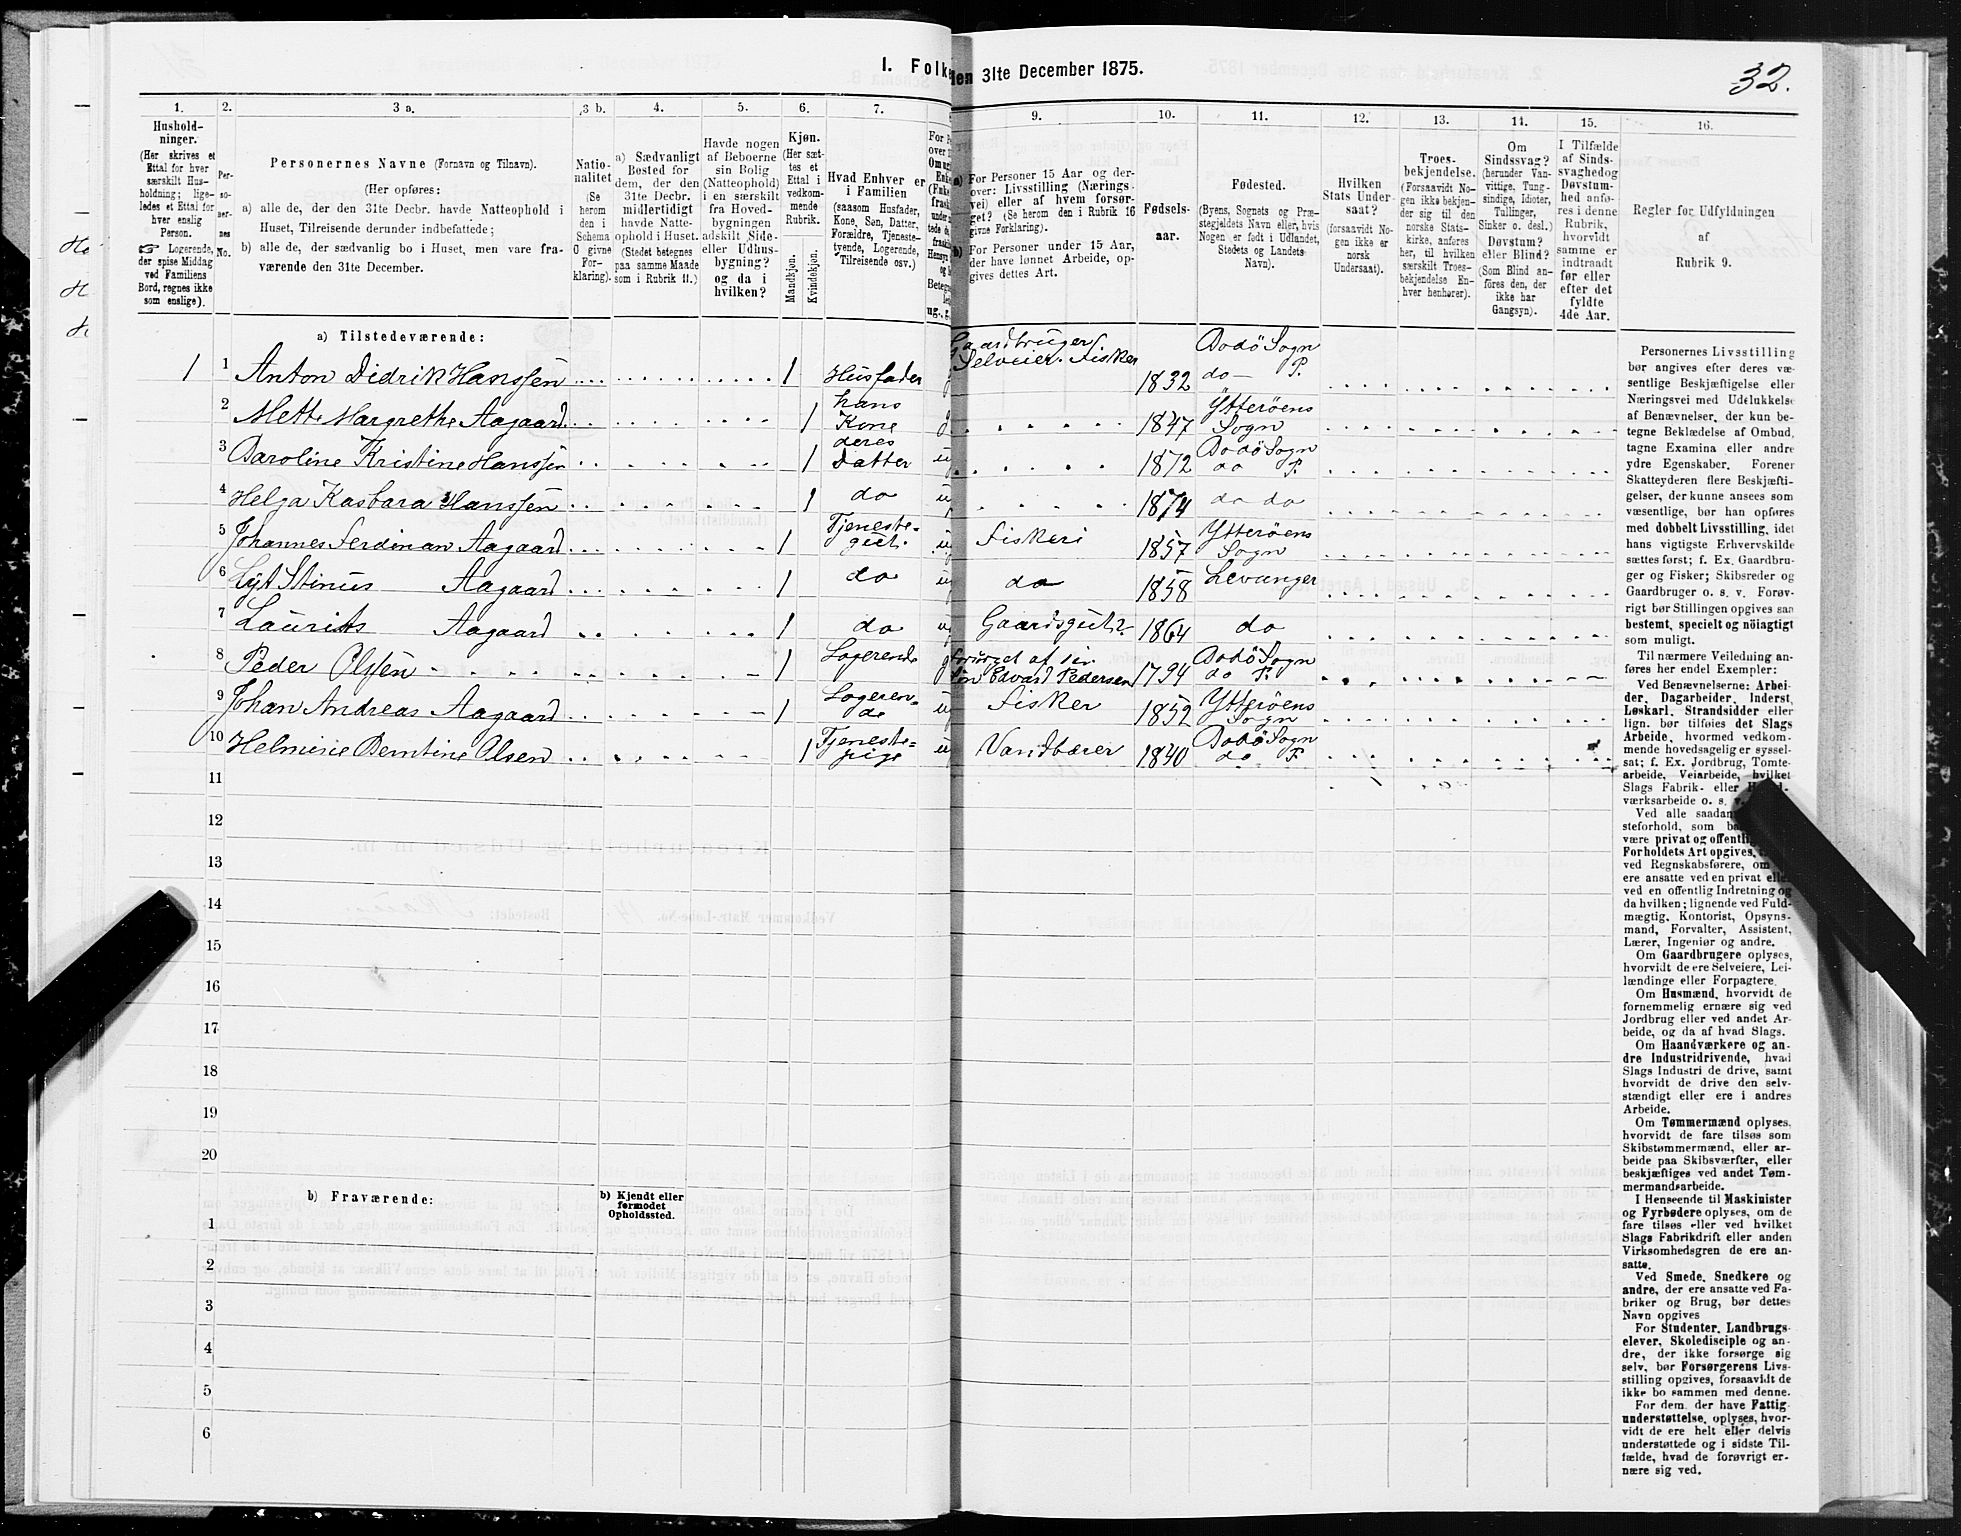 I. Folke
den 31te December 1875.
32.
1.
2.
3 a.
3 b.
4.
5.
6.
7.
9.
10.
11.
12.
13.
14.
15.
16.
Hushold-
ninger.
(Her skrives et
Ettal for hver
særskilt Hus-
holdning; lige-
ledes et Ettal for
hver enslig
Person.
☞ Logerende,
der spise Middag
ved Familiens
Bord, regnes ikke
som enslige).
Per-
so-
ner-
nes
No.
Personernes Navne (Fornavn og Tilnavn).
(Her opføres:
a) alle de, der den 31te Decbr. havde Natteophold i
Huset, Tilreisende derunder indbefattede;
b) alle de, der sædvanlig bo i Huset, men vare fra-
værende den 31te December.
Natio-
nalitet
(Se
herom
den i
Schema
0 givne
For-
klaring).
a) Sædvanligt
Bosted for
dem, der den
31te Decbr.
midlertidigt
havde Natte-
ophold i Huset.
(Stedet betegnes
paa samme Maade
som i Rubrik 11.)
Havde nogen
af Beboerne
sin Bolig
(Natteophold)
i en særskilt
fra Hoved-
bygningen
adskilt Side-
eller Udhus-
bygning?
og da i
hvilken?
Kjøn.
(Her sæt-
tes et
Ettal i
vedkom-
mende
Rubrik.
Mandkjøn.
Kvindekjøn.
Hvad Enhver er
i Familien
(saasom Husfader,
Kone, Søn, Datter,
Forældre, Tjeneste-
tyende, Logerende,
Tilreisende osv.)
a) For Personer 15 Aar og der-
over: Livsstilling (Nærings-
vei) eller af hvem forsør-
get? (Se herom den i Rubrik 16
givne Forklaring).
b) For Personer under 15 Aar,
der have lønnet Arbeide, op-
gives dettes Art.
Fødsels-
aar.
Fødested.
(Byens, Sognets og Præ-
stegjeldets Navn eller, hvis
Nogen er født i Udlandet,
Stedets og Landets
Navn).
Hvilken
Stats Under-
saat?
(forsaavidt No-
gen ikke er
norsk
Undersaat).
Troes-
bekjendelse.
(Forsaavidt No-
gen ikke bekjen-
der sig til den
norske Stats-
kirke, anføres
her, til hvilken
særskilt Troes-
bekjendelse En-
hver henhører).
Om
Sindssvag?
(herunder Van-
vittige, Tung-
sindige, Idioter,
Tullinger,
Sinker o. desl.)
Døvstum?
eller Blind?
(Som Blind an-
føres den, der
ikke har
Gangsyn).
I Tilfælde
af Sinds-
svaghed og
Døvstum-
hed anfø-
res i denne
Rubrik,
hvorvidt
samme er
indtraadt
før eller
efter det
fyldte
4de Aar.
Regler for Udfyldningen
af
Rubrik 9.
a) Tilstedeværende:
1 1 Anton Didrik Hanssen 1 Husfader Gaardbruger Selveier. Fisker 1832 Bodö Sogn do P.
2 Mette Margrethe Aagaard 1 hans Kone 1847 Ytterøens Sogn
3 Baroline Kristine Hanssen 1 deres Datter 1872 Bodö Sogn do P.
4 Helga Kasbara Hanssen 1 do 1874 do do
5 Johannes Ferdinan Aagaard 1 Tjenestegut. Fiskeri 1857 Ytterøens Sogn
6 Stinus Aagaard 1 do do 1858 Levanger
7 Laurits Aagaard 1 do Gaardsgut 1864 do
8 Peder Olssen 1 Logerende forsørget af sin Søn Edvard Pedersen 1794 Bodö Sogn do P.
9 Johan Andreas Aagaard 1 Logerende Fisker 1852 Ytterøens Sogn
10 Helmine Berntine Olsen 1 Tjenestepige Vandbærer 1840 Bodö Sogn do P.
11
12
13
14
15
16
17
18
19
20
b) Fraværende:
b) Kjendt eller
formodet
Opholdssted.
1
2
3
4
5
6
Personernes Livsstilling
bør angives efter deres væ-
sentlige Beskjæftigelse eller
Næringsvei med Udelukkelse
af Benævnelser, der kun be-
tegne Beklædelse af Ombud,
tagne Examina eller andre
ydre Egenskaber. Forener
Skatteyderen flere Beskjæfti-
gelser, der kunne ansees som
væsentlige, bør han opføres
med dobbelt Livsstilling, idet
hans vigtigste Erhvervskilde
sættes først; f. Ex. Gaardbru-
ger og Fisker; Skibsreder og
Gaardbruger o. s. v. Forøv-
rigt bør Stillingen opgives saa
bestemt, specielt og nöiagtigt
som muligt.
Til nærmere Veiledning an-
føres her endel Exempler:
Ved Benævnelserne: Arbei-
der, Dagarbeider, Inderst,
Løskarl, Strandsidder eller
lign. bør tilføies det Slags
Arbeide, hvormed vedkom-
mende hovedsagelig er syssel-
sat; f. Ex. Jordbrug, Tomte-
arbeide, Veiarbeide, hvilket
Slags Fabrik- eller
værksarbeide o. s. v.
Ved alle saadan
steforhold, som
være privat og offentlig
Forholdets Art opgives,
ved Regnskabsførere, om
ere ansatte ved en privat eller
ved en offentlig Indretning og
da hvilken; lignende ved Fuld-
mægtig, Kontorist, Opsyns-
mand, Forvalter, Assistent,
Lærer, Ingeniør og andre.
Om Gaardbrugere oplyses,
hvorvidt de ere Selveiere, Lei-
lændinge eller Forpagtere.
Om Husmænd, hvorvidt de
fornemmelig ernære sig ved
Jordbrug eller ved andet Ar-
beide, og da af hvad Slags.
Om Haandværkere og an-
dre Industridrivende, hvad
Slags Industri de drive, samt
hvorvidt de drive den selv-
stændigt eller ere i andres
Arbeide.
Om Tømmermænd oplyses,
hvorvidt de fare tilsøs som
Skibstømmermænd, eller ar-
beide paa Skibsværfter, eller
beskjæftiges ved andet Tøm-
mermandsarbeide.
I Henseende til Maskinister
og Fyrbødere oplyses, om de
fare tilsøs eller ved hvilket
Slags Fabrikdrift eller anden
Virksomhedsgren de ere an-
satte.
Ved Smede, Snedkere og
andre, der ere ansatte ved Fa-
briker og Brug, bør dettes
Navn opgives
For Studenter, Landbrugs-
elever, Skoledisciple og an-
dre, der ikke forsørge sig
selv, bør Forsørgerens Livs-
stilling opgives, forsaavidt de
ikke bo sammen med denne.
For dem, der have Fattig-
understøttelse, oplyses, hvor-
vidt de ere helt eller delvis
understøttede og i sidste Til-
fælde, hvad de forøvrigt er-
nære sig ved.